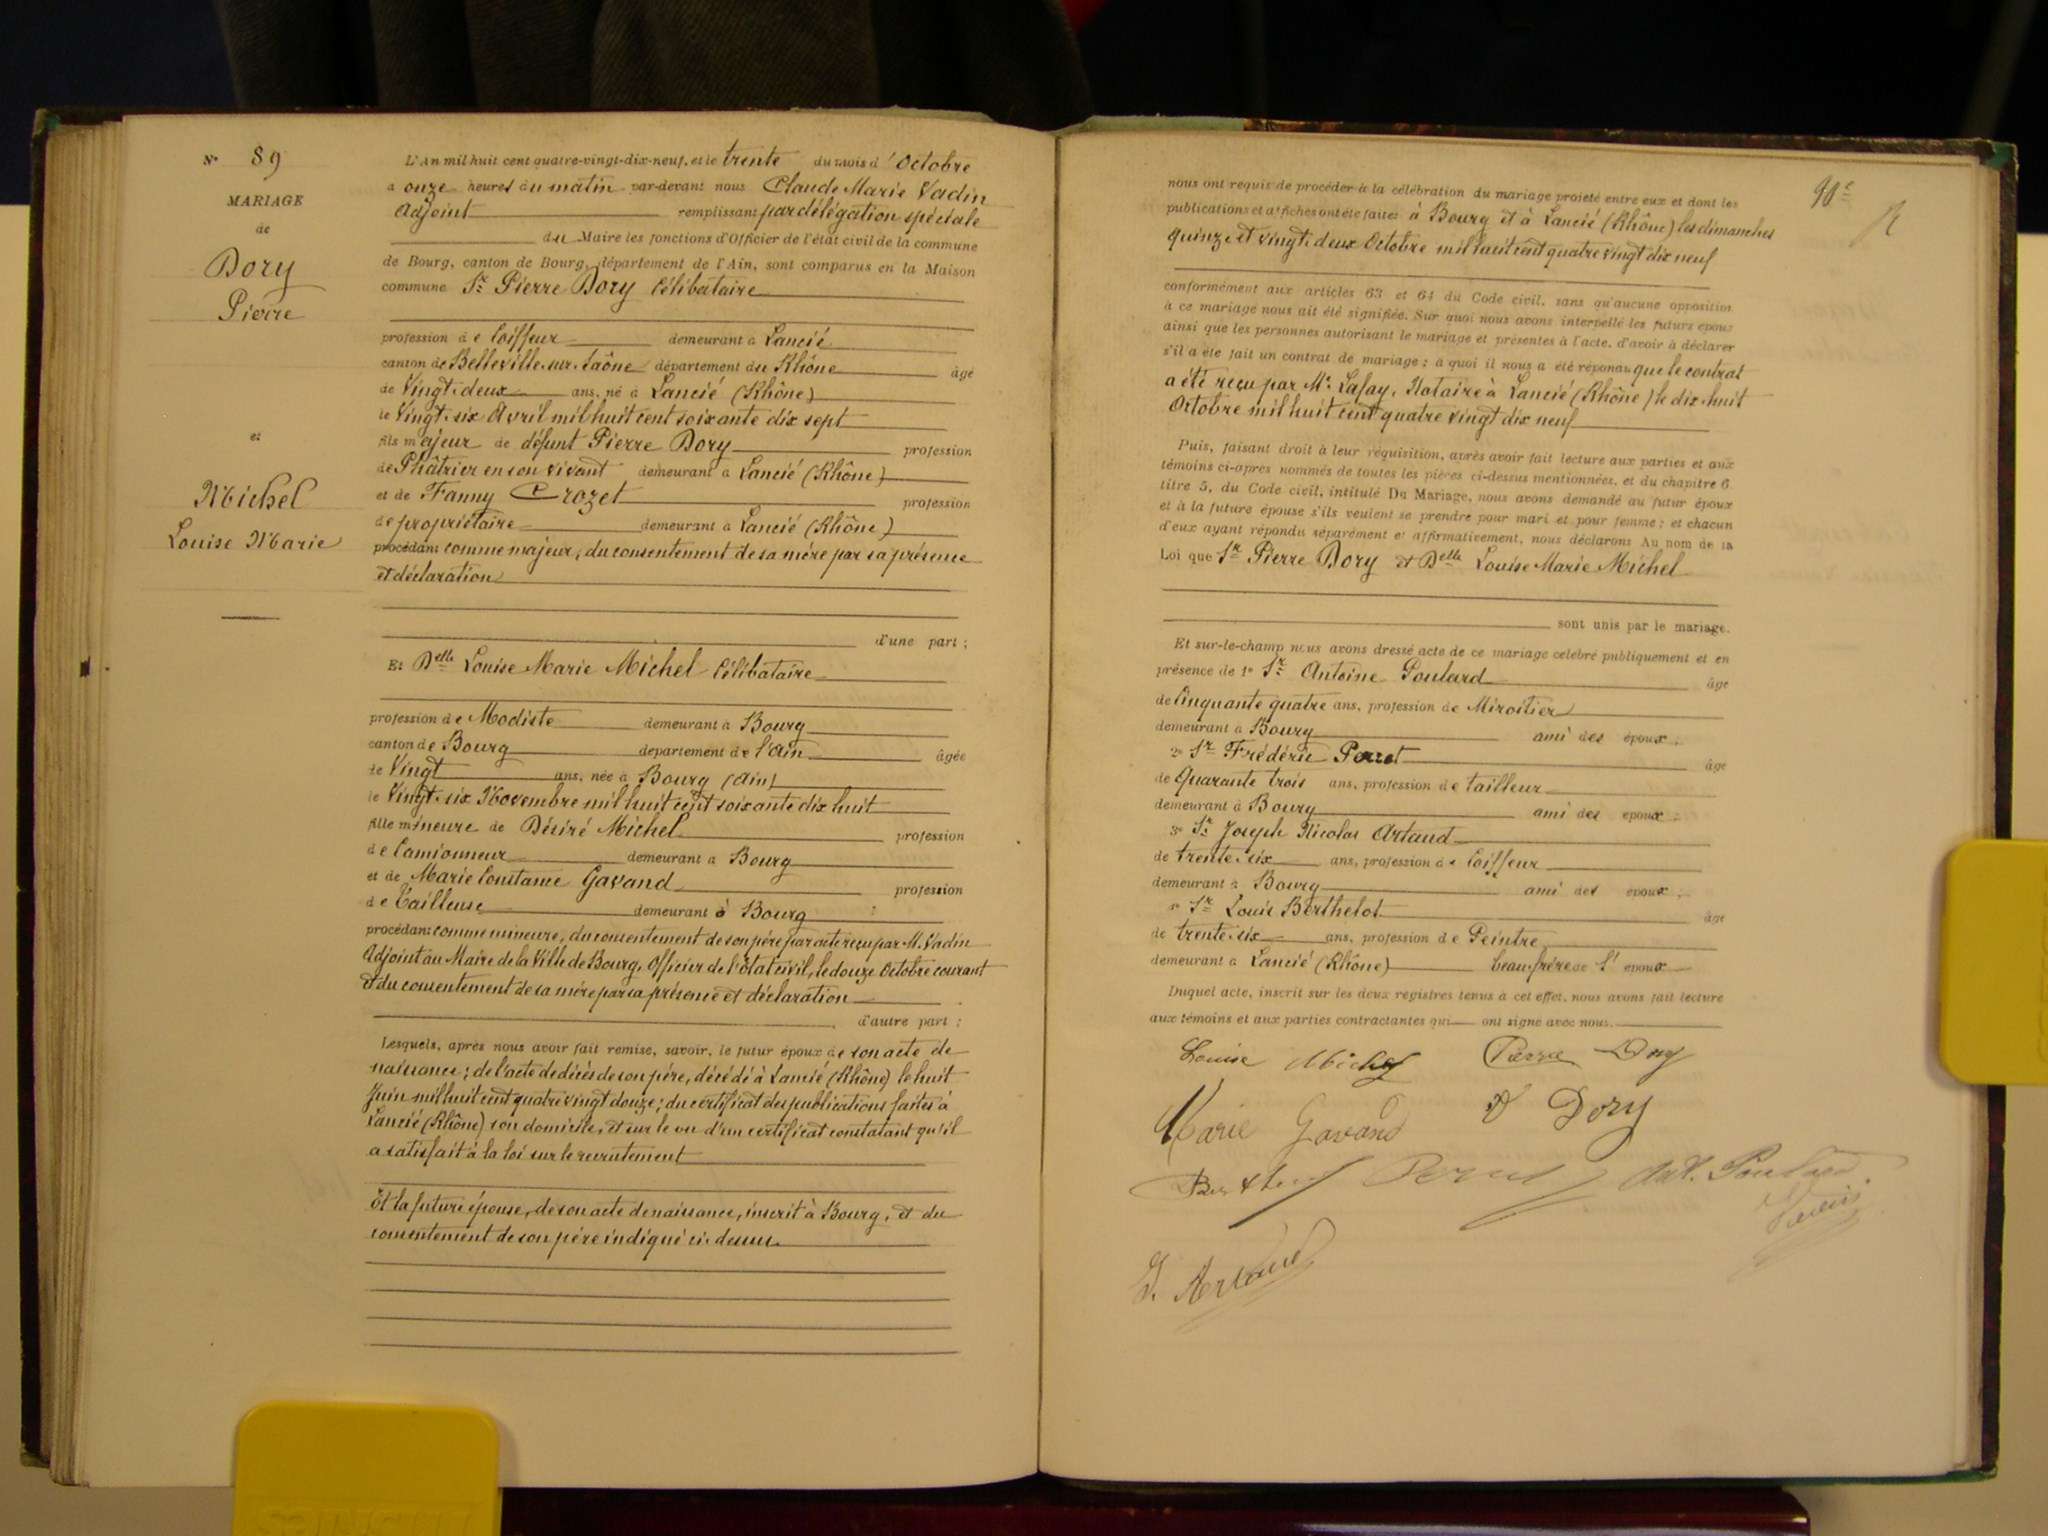 N° 89
MARIAGE
de
Dory
Pierre
et
Michel
Louise Marie
L'An mil huit cent quatre-vingt-dix-neuf, et le trente du mois d'Octobre
à onze heures du matin par-devant nous Claude Marie Vadin
Adjoint remplissant par délégation spéciale
du Maire les fonctions d'Officier de l'état civil de la commune
de Bourg, canton de Bourg, département de l'Ain, sont comparus en la Maison
commune Sr Pierre Dory Célibataire
profession de Coiffeur demeurant à Lancié
canton de Belleville sur Saône département du Rhône âgé
de Vingt-deux ans, né à Lancié (Rhône)
le Vingt-six Avril mil huit cent soixante dix sept
fils majeur de défunt Pierre Dory profession
de Plâtrier en son vivant demeurant à Lancié (Rhône)
et de Fanny Crozet profession
de propriétaire demeurant à Lancié (Rhône)
procédant comme majeur, du consentement de sa mère par sa présence
et déclaration
d'une part ;
Et Delle Louise Marie Michel Célibataire
profession de Modiste demeurant à Bourg
canton de Bourg département de l'Ain âgée
de Vingt ans, née à Bourg (Ain)
le Vingt-six Novembre mil huit cent soixante dix huit
fille mineure de Désiré Michel profession
de Camionneur demeurant à Bourg
et de Marie Constance Gavand profession
de Tailleuse demeurant à Bourg
procédant comme mineure, du consentement de son père par acte reçu par M. Vadin
Adjoint au Maire de la Ville de Bourg, Officier de l'État civil, le douze Octobre courant
et du consentement de sa mère par sa présence et déclaration
d'autre part ;
Lesquels, après nous avoir fait remise, savoir, le futur époux de son acte de
naissance ; de l'acte de décès de son père, décédé à Lancié (Rhône) le huit
Juin mil huit cent quatre vingt douze ; du certificat des publications faites à
Lancié (Rhône) son domicile, et sur le vu d'un certificat constatant qu'il
a satisfait à la loi sur le recrutement
Et la future épouse, de son acte de naissance, inscrit à Bourg, et du
consentement de son père indiqué ci-dessus.
nous ont requis de procéder à la célébration du mariage projeté entre eux et dont les
publications et affiches ont été faites à Bourg et à Lancié (Rhône) les dimanches
quinze et vingt-deux Octobre mil huit cent quatre vingt dix neuf
conformément aux articles 63 et 64 du Code civil, sans qu'aucune opposition
à ce mariage nous ait été signifiée. Sur quoi nous avons interpellé les futurs époux
ainsi que les personnes autorisant le mariage et présentes à l'acte, d'avoir à déclarer
s'il a été fait un contrat de mariage ; à quoi il nous a été répondu que le contrat
a été reçu par Me Lafay, Notaire à Lancié (Rhône) le dix-huit
Octobre mil huit cent quatre vingt dix neuf
Puis, faisant droit à leur réquisition, après avoir fait lecture aux parties et aux
témoins ci-après nommés de toutes les pièces ci-dessus mentionnées, et du chapitre 6,
titre 5, du Code civil, intitulé Du Mariage, nous avons demandé au futur époux
et à la future épouse s'ils veulent se prendre pour mari et pour femme ; et chacun
d'eux ayant répondu séparément et affirmativement, nous déclarons Au nom de la
Loi que Sr Pierre Dory et Delle Louise Marie Michel
sont unis par le mariage.
Et sur-le-champ nous avons dressé acte de ce mariage célébré publiquement et en
présence de 1° Sr Antoine Poulard âgé
de Cinquante quatre ans, profession de Miroitier
demeurant à Bourg ami des époux ;
2° Sr Frédéric Perret âgé
de Quarante trois ans, profession de tailleur
demeurant à Bourg ami des époux ;
3° Sr Joseph Nicolas Artaud
de trente-six ans, profession de Coiffeur
demeurant à Bourg ami des époux ;
4° Sr Louis Berthelot âgé
de trente-six ans, profession de Peintre
demeurant à Lancié (Rhône) beau-frère de l'époux
Duquel acte, inscrit sur les deux registres tenus à cet effet, nous avons fait lecture
aux témoins et aux parties contractantes qui ont signé avec nous.
Louise Michel Pierre Dory
Marie Gavand Dory
Perret Ant. Poulard
Vadin
J. Artaud